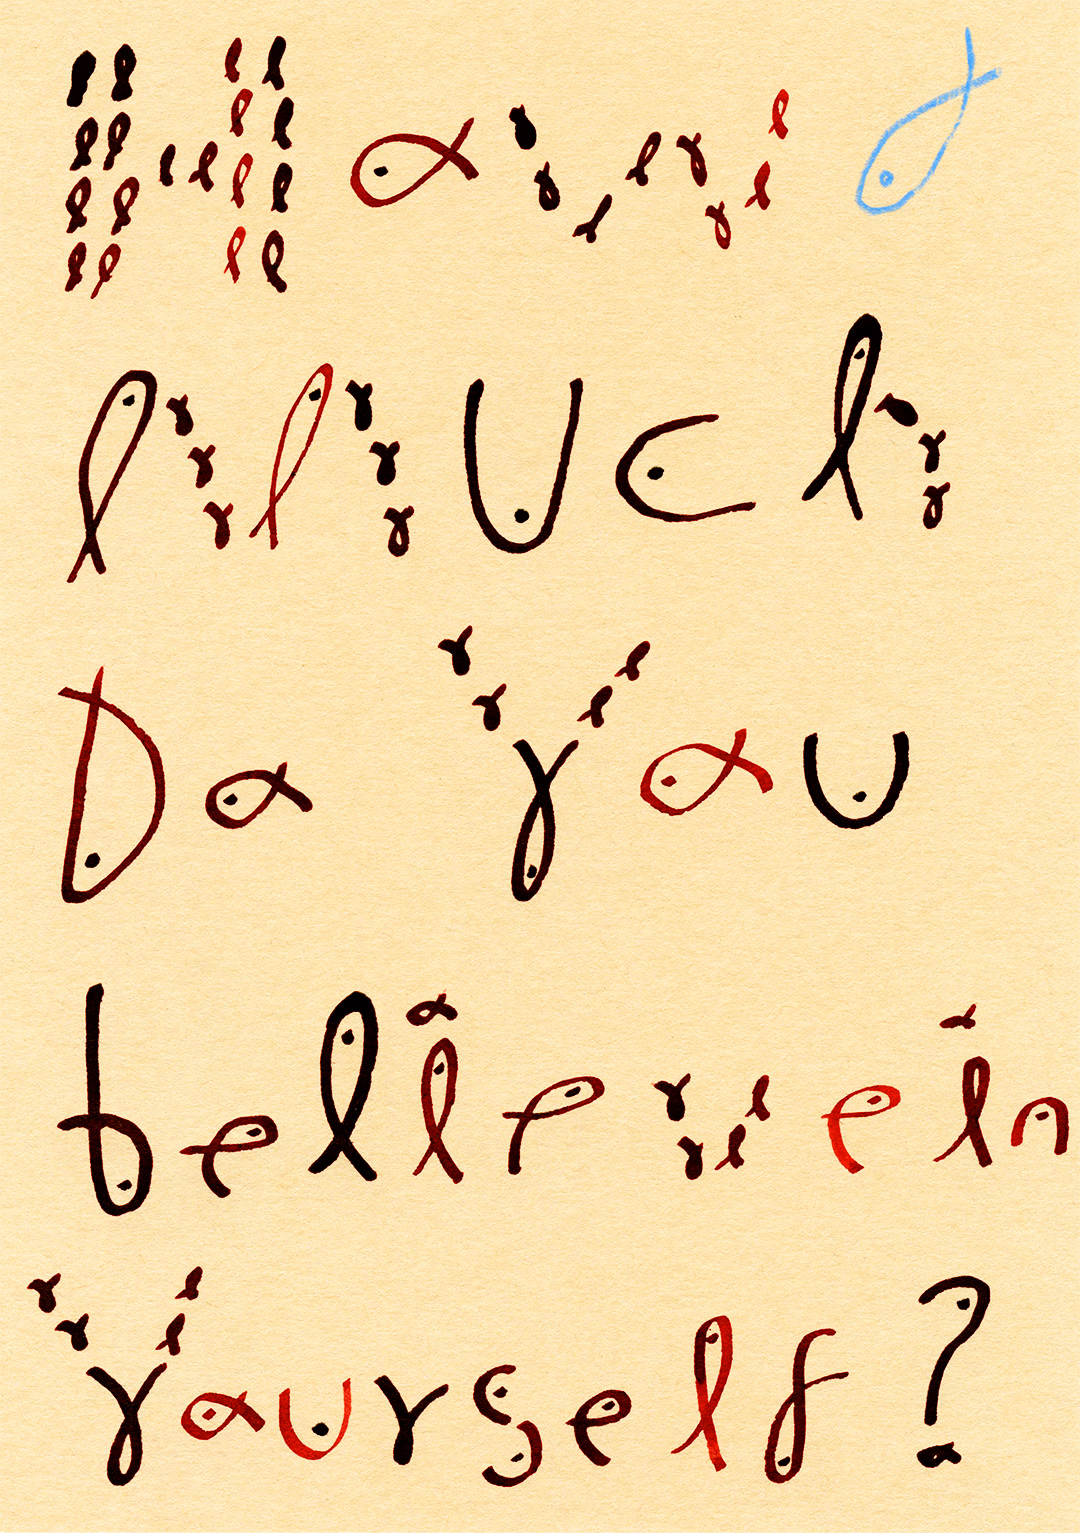 How
MUCh
Do You
believe in
yourself?